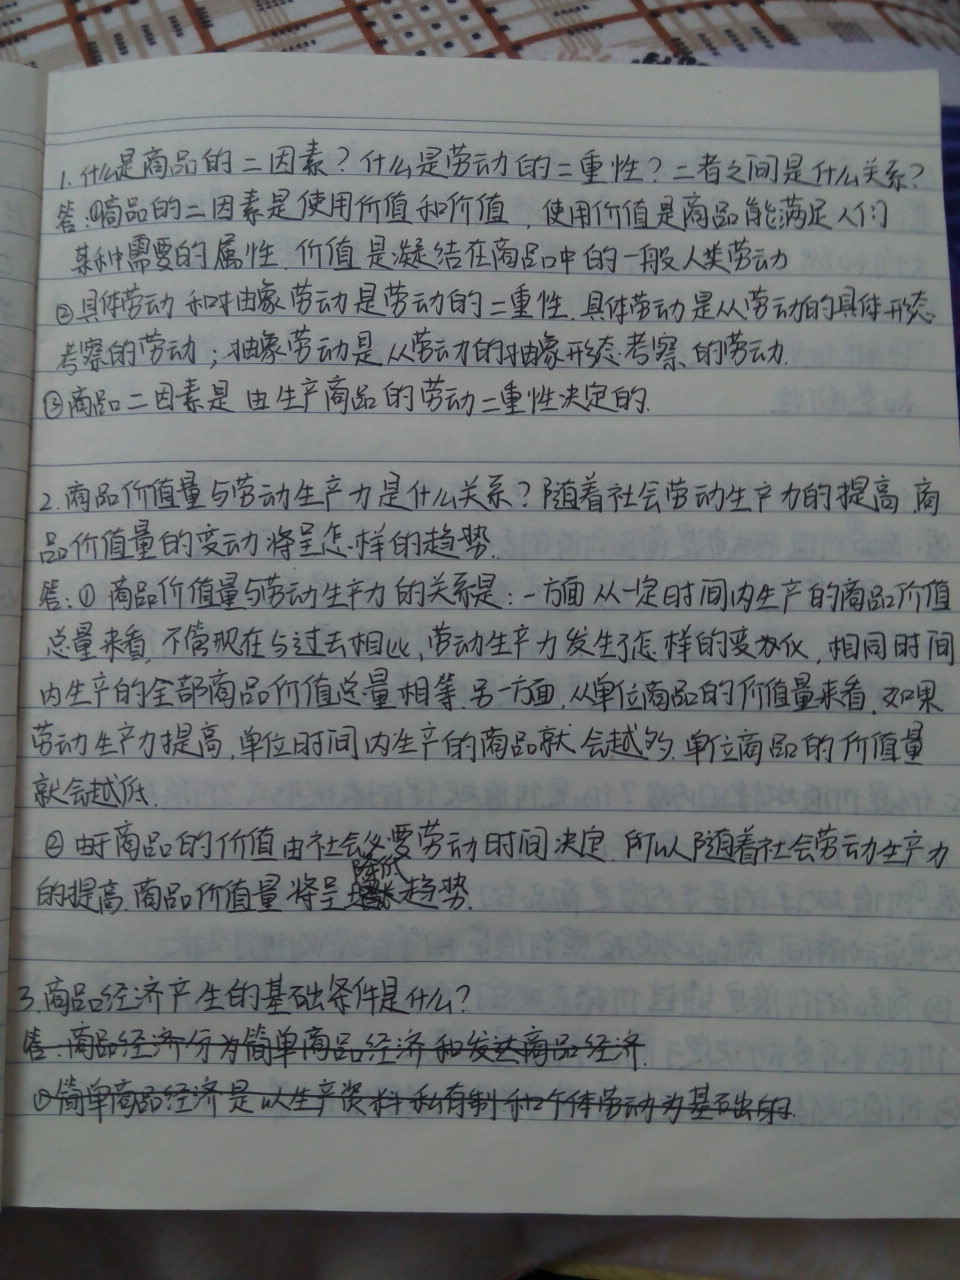 1.什么是商品的二因素?什么是劳动的二重性?二者之间是什么关系?
答:①商品的二因素是使用价值和价值,使用价值是商品能满足人们
某种需要的属性.价值是凝结在商品中的一般人类劳动
②具体劳动和抽象劳动是劳动的二重性.具体劳动是从劳动的具体形态
考察的劳动;抽象劳动是从劳动的抽象形态考察的劳动.
③商品二因素是由生产商品的劳动二重性决定的.
2.商品价值量与劳动生产力是什么关系?随着社会劳动生产力的提高,商
品价值量的变动将呈怎样的趋势.
答:①商品价值量与劳动生产力的关系是:一方面从一定时间内生产的商品价值
总量来看,不管现在与过去相比,劳动生产力发生了怎样的变化,相同时间
内生产的全部商品价值总量相等.另一方面,从单位商品的价值量来看,如果
劳动生产力提高,单位时间内生产的商品就会越多,单位商品的价值量
就会越低.
②由于商品的价值由社会必要劳动时间决定.所以随着社会劳动生产力
的提高.商品价值量将呈降低趋势.
3.商品经济产生的基础条件是什么?
答:商品经济分为简单商品经济和发达商品经济.
①简单商品经济是以生产资料私有制和个体劳动为基础的.